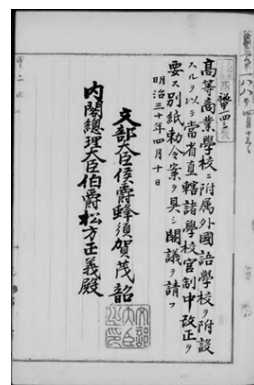 高等商業學校ニ附属外國語學校ヲ附設
スルヲ以テ當省直轄諸學校官制中改正ヲ
要ス別紙勅令案ヲ具シ閣議ヲ請フ
明治三十年四月十日
文部大臣侯爵蜂須賀茂韶
内閣總理大臣伯爵松方正義殿